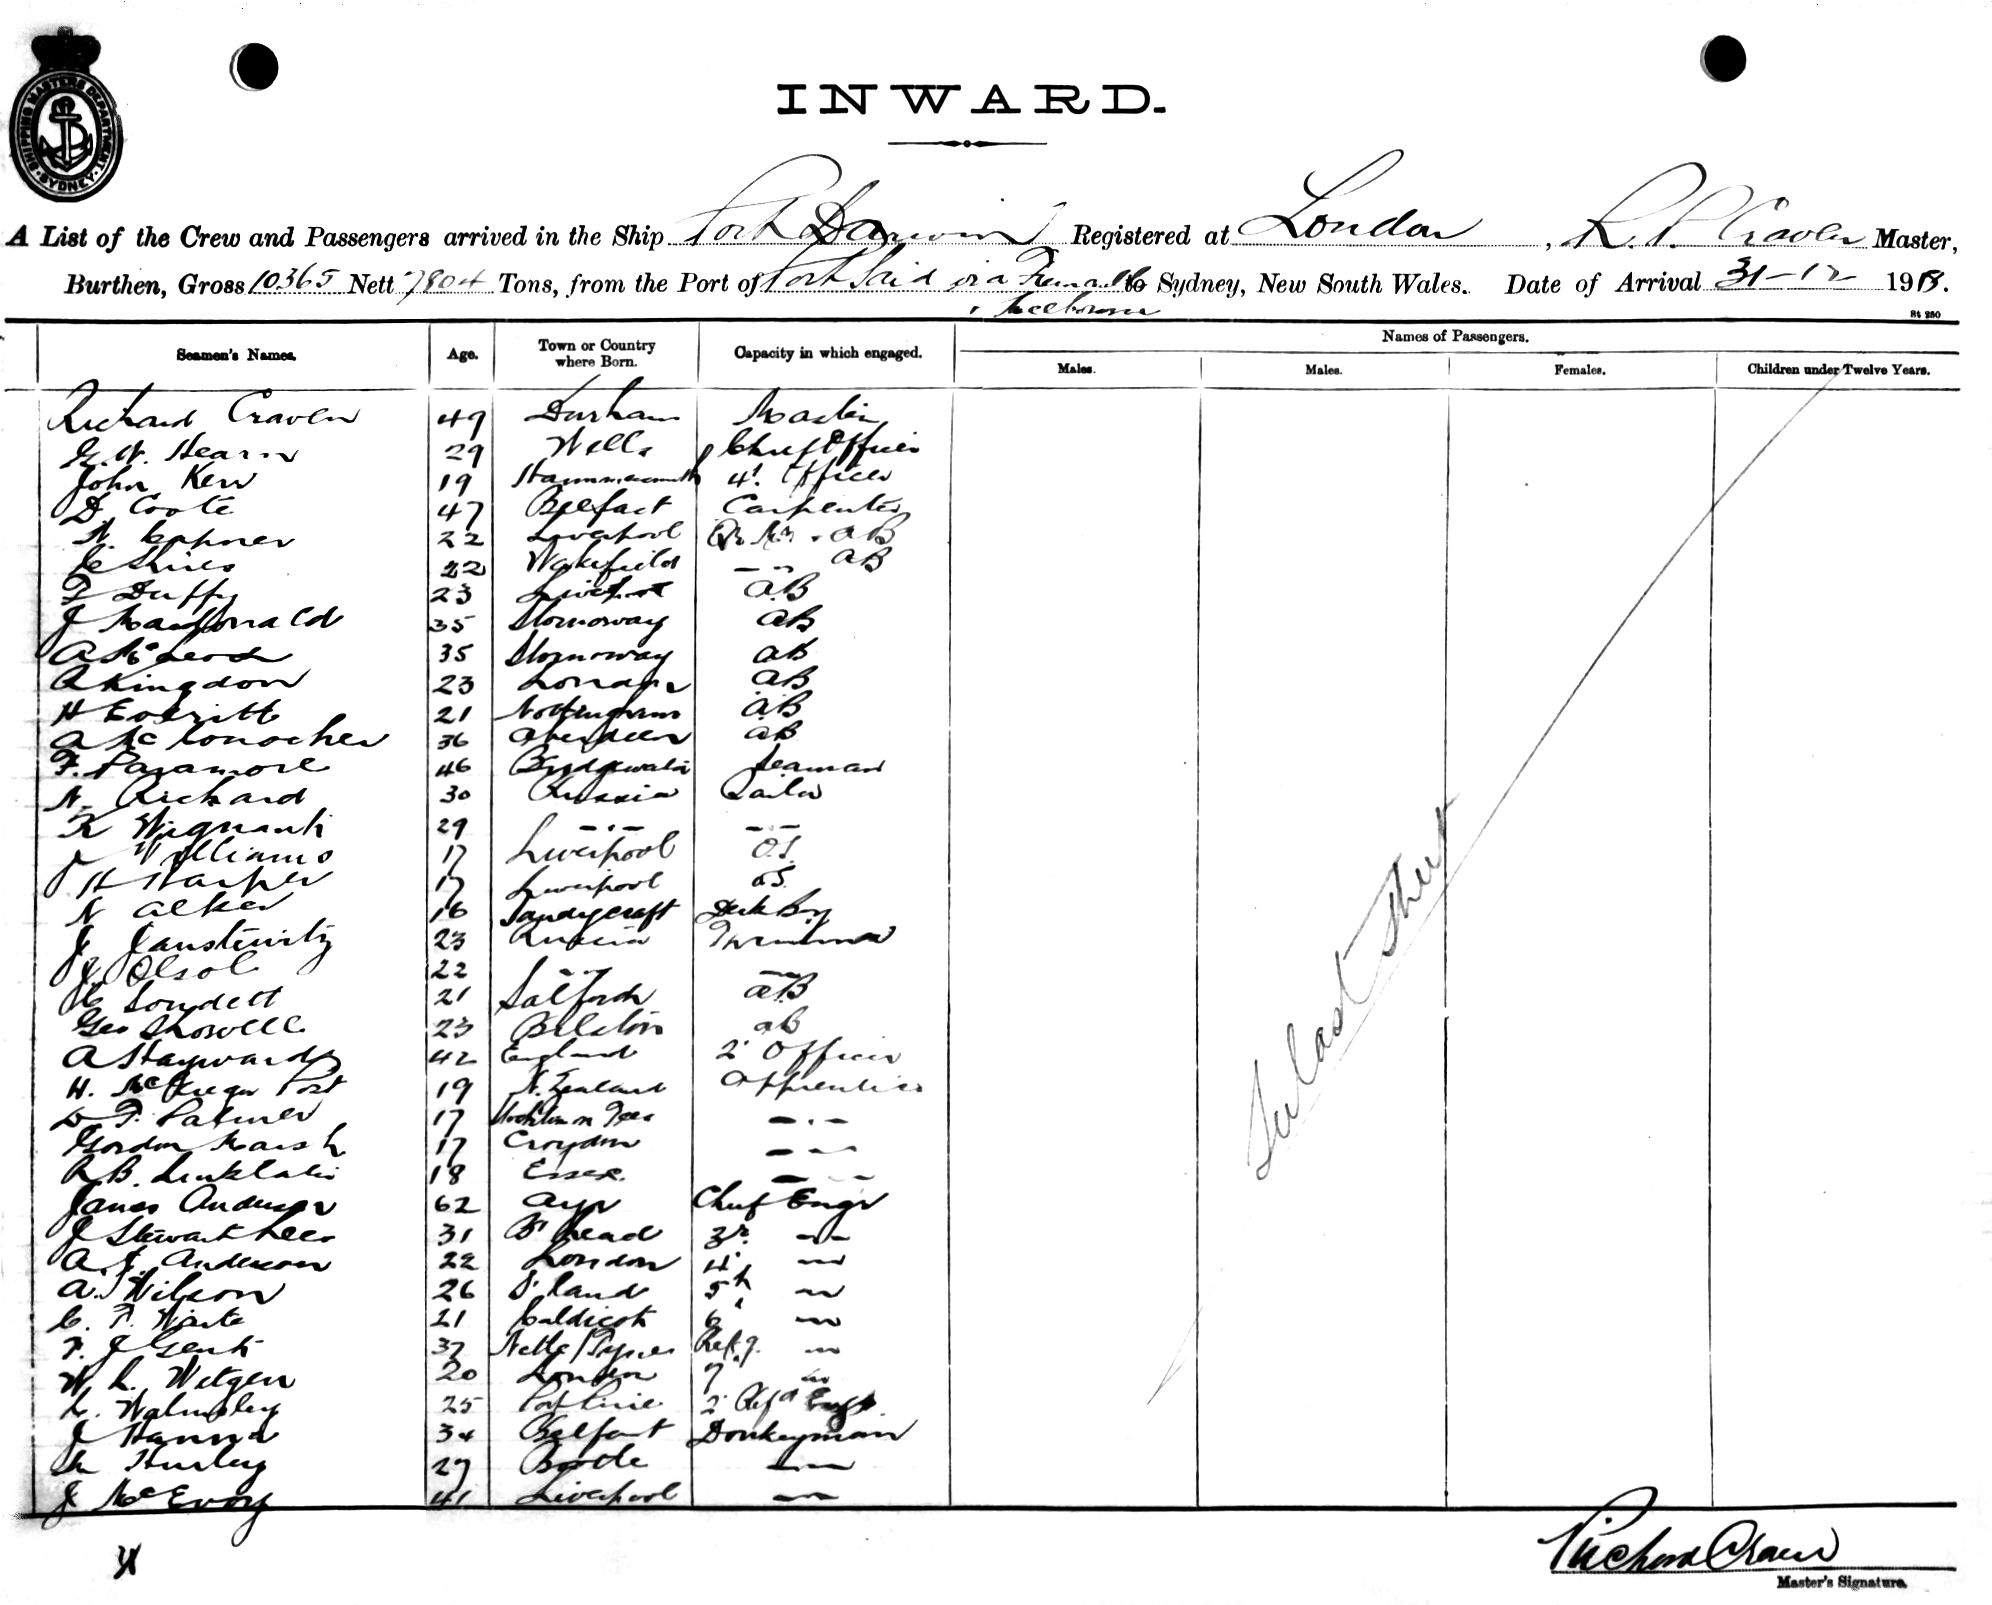 SHIPPING MASTERS DEPARTMENT
SYDNEY
INWARD.
A List of the Crew and Passengers arrived in the Ship Port Darwin Registered at London, R. P. Craven Master,
Burthen, Gross 10365 Nett 7804 Tons, from the Port of Port Said via Fremantle to Sydney, New South Wales. Date of Arrival 31-12 1918.
Melbourne
84 250
Seamen's Names. Age. Town or Country where Born. Capacity in which engaged. Names of Passengers.
Males. Males. Females. Children under Twelve Years.
Richard Craven 49 Durham Master
G. W. Hearn 29 Wells Chief Officer
John Kerr 19 Hammersmith 4' Officer
D Coote 47 Belfast Carpenter
22 Liverpool AB
22 Wakefield -"- AB
T Duffy 23 AB
J MacDonald 35 Stornoway AB
A McLeod 35 Stornoway AB
A Kingdon 23 London AB
H Everitt 21 Nottingham AB
A McConochie 36 Aberdeen AB
F. Paramore 46 Bridgewater Seaman
N. Richard 30 Russia Sailor
K 29 -"- -"-
J Williams 17 Liverpool O.S.
H Harper 17 Liverpool O.S.
N Alker 16 Sandycroft Deck Boy
J 23 Russia
J Olsol 22 -"- -"-
21 Salford AB
Geo Showell 23 Bilston AB
A Hayward 42 England 2' Officer
H. McGregor Port 19 N. Zealand Apprentice
D F. Palmer 17 Stockton on Tees -"-
Gordon Marsh 17 Croydon -"-
R B. Linklater 18 Essex -"-
James Anderson 62 Ayr Chief Engr
J Stewart Lees 31 B'head 3r. -"-
A. J. Anderson 22 London 4' -"-
A. Wilson 26 S'land 5th -"-
C. F. Waite 21 Caldicot 6' -"-
F. J Gent 37 Refg. -"-
W. L. Witgen 20 London 7' -"-
L. Walmsley 25 Port Pirie 2' Refg Engr.
J Hanna 34 Belfast Donkeyman
Hurley 27 Bootle -"-
J McEvoy 41 Liverpool -"-
See last Sheet
Richard Craven
Master's Signature.